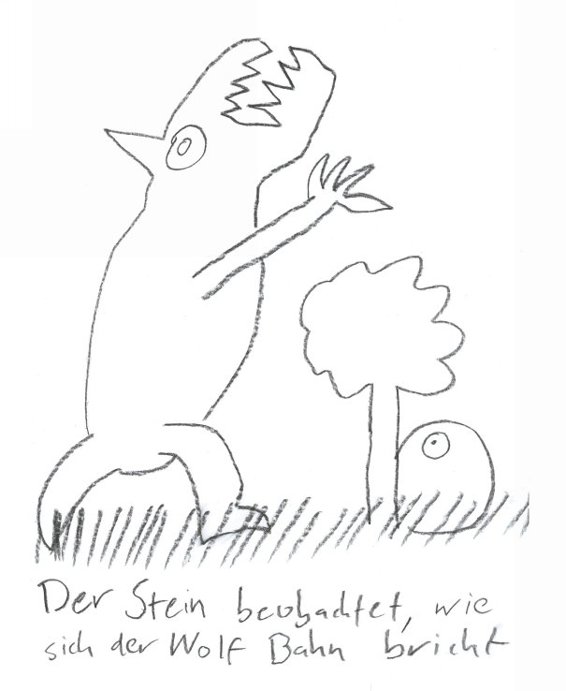 Der Stein beobachtet, wie
sich der Wolf Bahn bricht